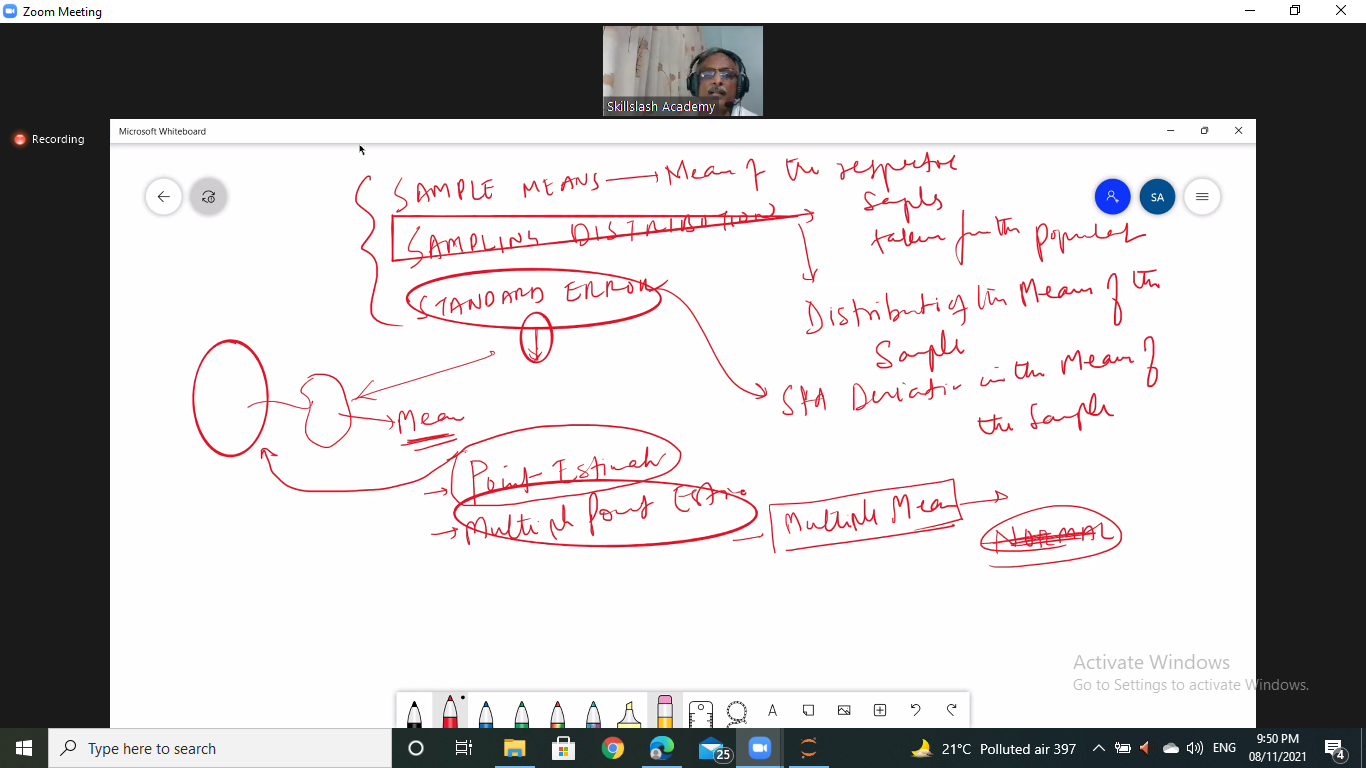 Zoom Meeting
Skillslash Academy
Recording
Microsoft Whiteboard
SA
SAMPLE MEANS → Mean of the respective
Samples
taken from the Populat
SAMPLING DISTRIBUTION
STANDARD ERROR
Distributi of the Mean of the
Sample
Std Deviation in the Mean of
the Sample
Mean
Point Estimate
Multiple Point Estim
Multiple Mean
NORMAL
Activate Windows
Go to Settings to activate Windows.
A
Type here to search
25
21°C Polluted air 397
ENG
9:50 PM
08/11/2021
4